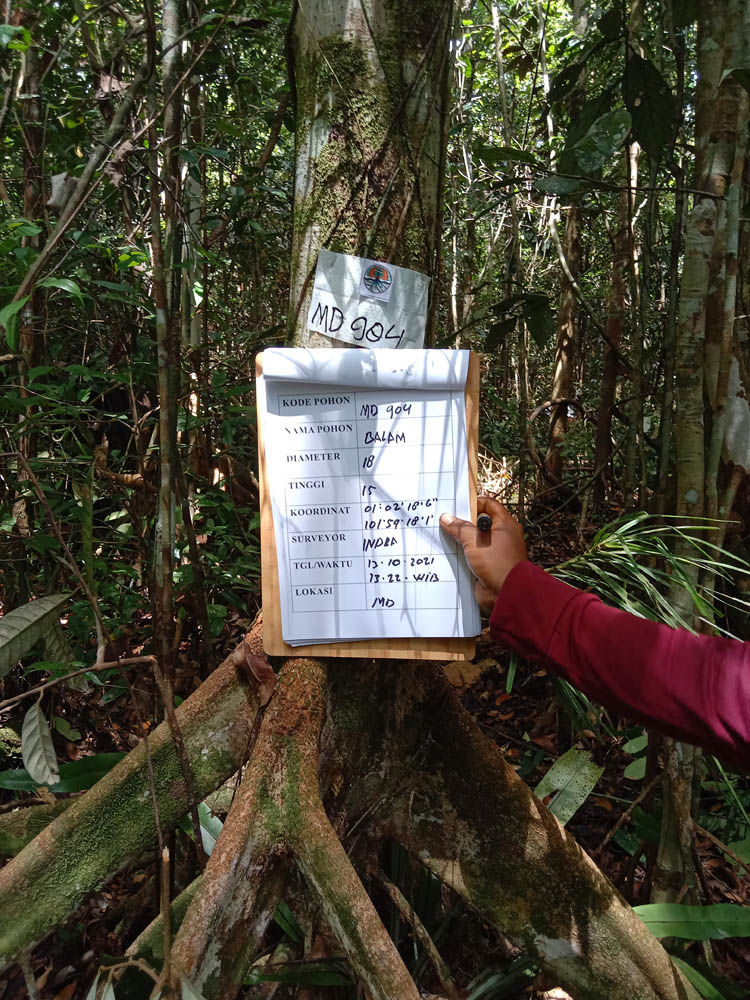 MD 904
KODE POHON MD 904
NAMA POHON BALAM
DIAMETER 18
TINGGI 15
KOORDINAT 01°02'18.6"
101°59'18.1"
SURVEYOR INDRA
TGL/WAKTU 13.10.2021
13.22. WIB
LOKASI MD